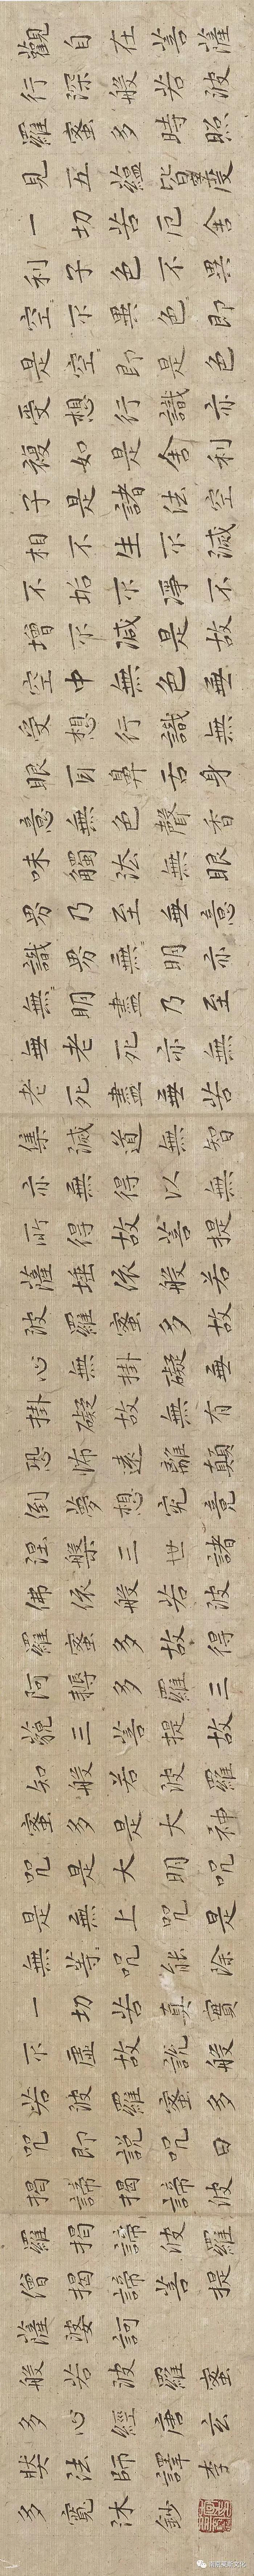 觀自在菩薩
行深般若波
羅蜜多時照
見五蘊皆度
一切苦厄舍
利子色不異
空不異色即
是空即是色
受想行識亦
複如是舍利
子是諸法空
相不生不滅
不垢不淨不
增不減是故
空中無色無
受想行識無
眼耳鼻舌身
意無色聲香
味觸法無眼
界乃至無意
識界無明亦
無明盡乃至
無老死亦無
老死盡無苦
集滅道無智
亦無得以無
所得故菩提
薩埵依般若
波羅蜜多故
心無掛礙無
掛礙故無有
恐怖遠離顛
倒夢想究竟
涅槃三世諸
佛依般若波
羅蜜多故得
阿耨多羅三
藐三菩提故
知般若波羅
蜜多是大神
咒是大明咒
是無上咒是
無等咒能除
一切苦真實
不虛故說般
若波羅蜜多
咒即說咒曰
揭諦揭諦波
羅揭諦波羅
僧揭諦菩提
薩婆訶
般若波羅蜜
多心經唐玄
奘法師譯李
多寬沐鈔